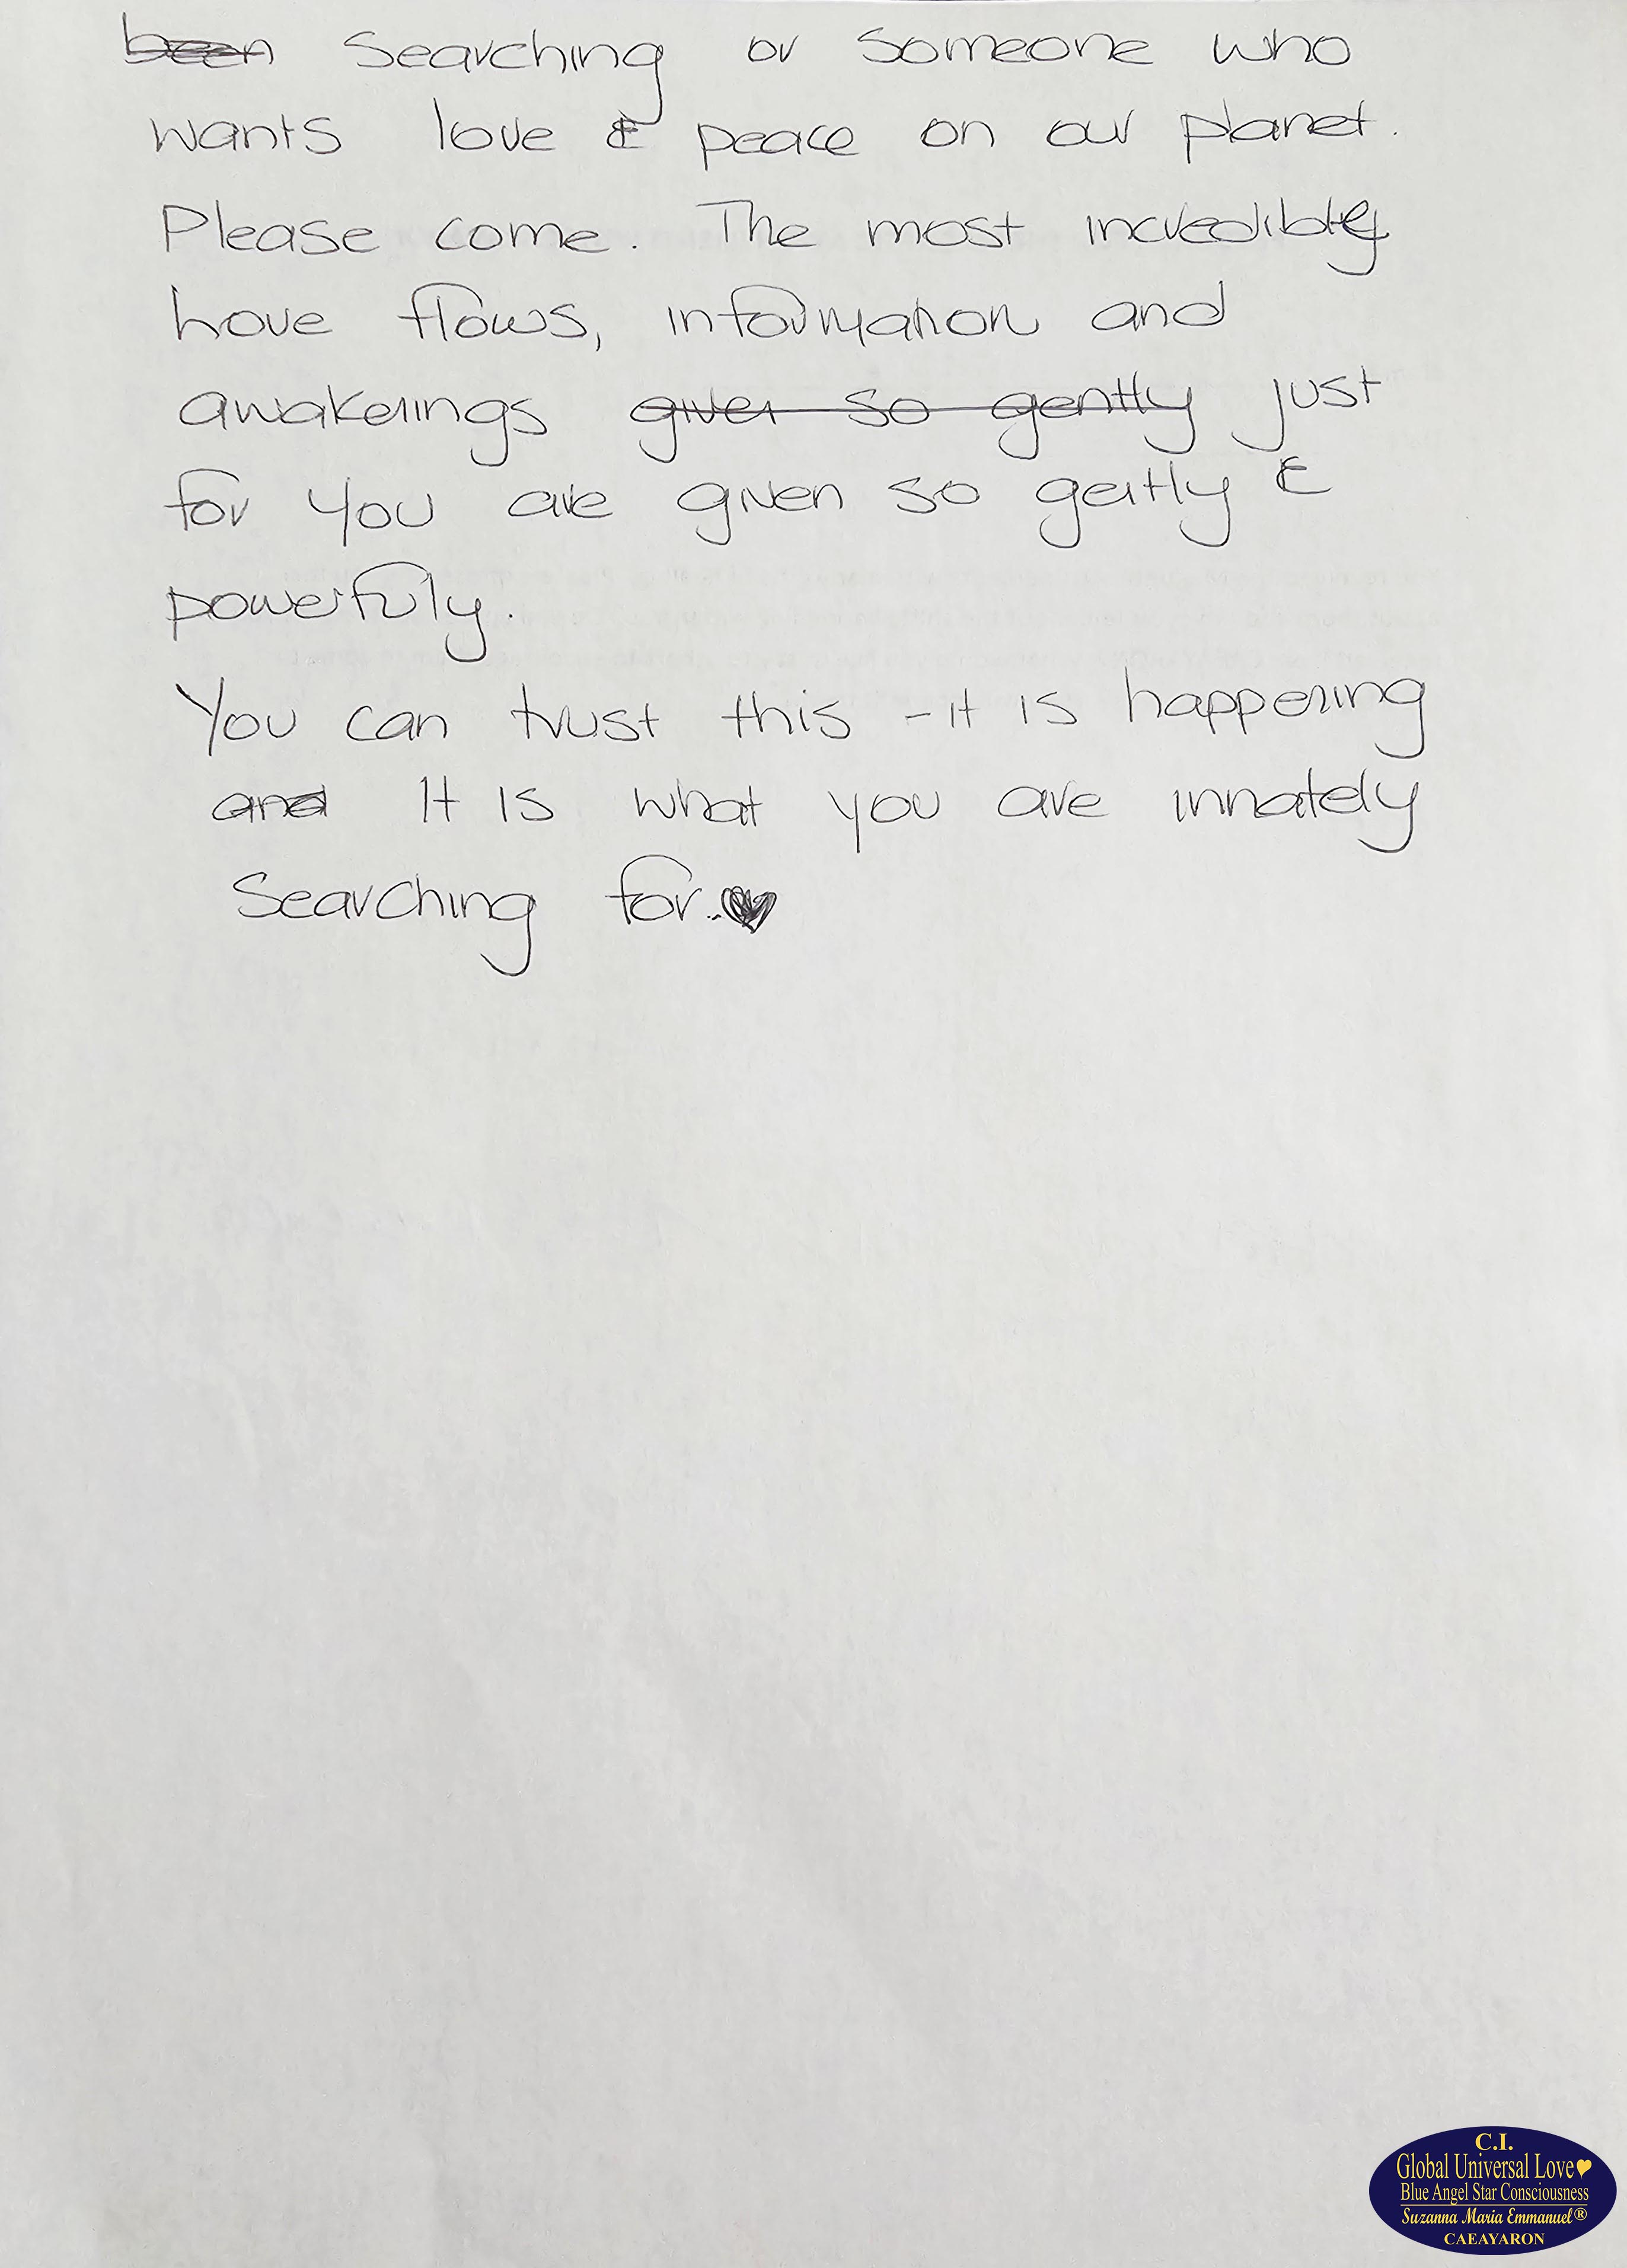 been searching or someone who
wants love & peace on our planet.
Please come. The most incredibly
Love flows, information and
awakenings given so gently just
for you are given so gently &
powerfuly.
You can trust this - it is happening
and It is what you are innately
Searching for..
C.I.
Global Universal Love
Blue Angel Star Consciousness
Suzanna Maria Emmanuel®
CAEAYARON